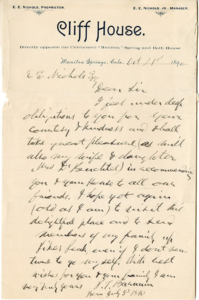 E. E. NICHOLS, PROPRIETOR.
E. E. NICHOLS, JR., MANAGER.
Cliff House.
Directly opposite the Celebrated "Soda" Spring and Bath House
Manitou Springs, Colo. Oct 21st 1890
E. E. Nichols Esq
Dear Sir
I feel under deep
obligations to you for your
courtesy & kindness and shall
take great pleasure, as will
also my wife & daughter
Mrs in recommending
you & your house to all our
friends. I hope yet again
(old as I am) to visit this
delightful place and to have
members of my family up
Pikes Peak even if I don't ven-
ture to go myself. With best
wishes for you & your family I am
truly yours
P. T. Barnum
Born July 5th 1810